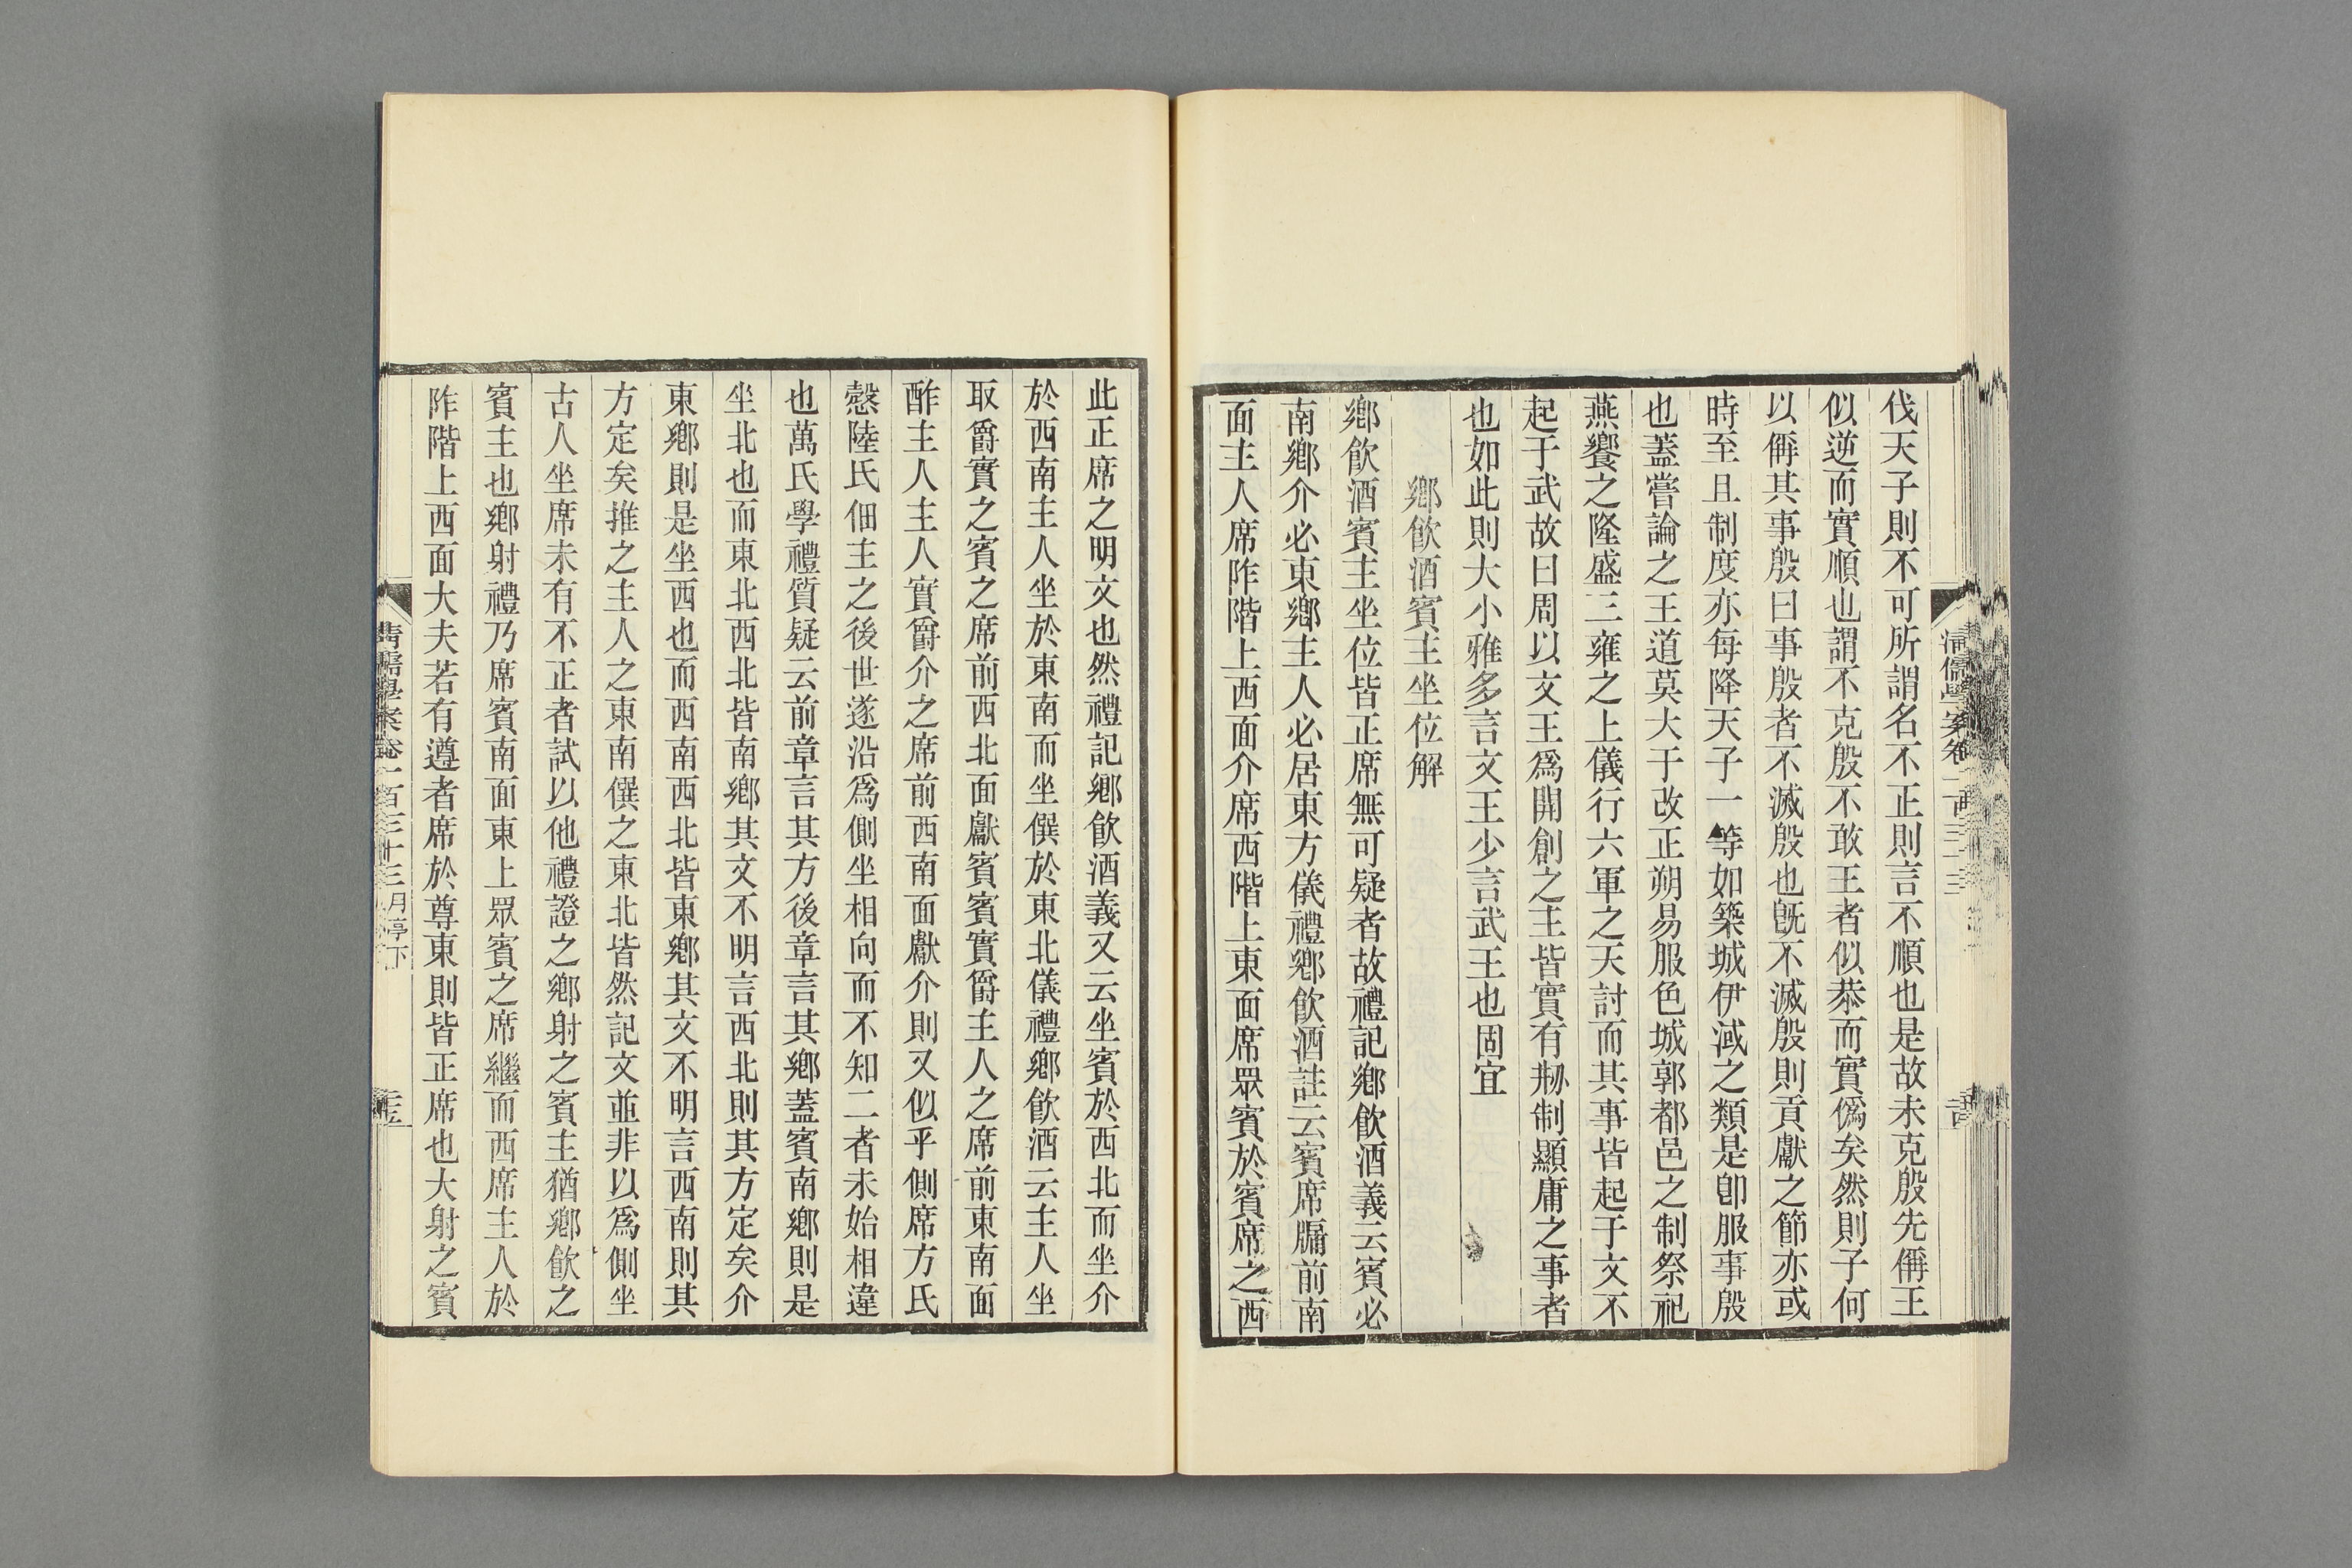 伐天子則不可所謂名不正則言不順也是故未克殷先偁王
似逆而實順也謂不克殷不敢王者似恭而實僞矣然則子何
以偁其事殷曰事殷者不滅殷也旣不滅殷則貢獻之節亦或
時至且制度亦每降天子一等如築城伊淢之類是卽服事殷
也蓋嘗論之王道莫大于改正朔易服色城郭都邑之制祭祀
燕饗之隆盛三雍之上儀行六軍之天討而其事皆起于文不
起于武故曰周以文王爲開創之主皆實有剏制顯庸之事者
也如此則大小雅多言文王少言武王也固宜
鄉飮酒賓主坐位解
鄉飮酒賓主坐位皆正席無可疑者故禮記鄉飮酒義云賓必
南鄉介必東鄉主人必居東方儀禮鄉飮酒註云賓席牖前南
面主人席阼階上西面介席西階上東面席眾賓於賓席之西
此正席之明文也然禮記鄉飮酒義又云坐賓於西北而坐介
於西南主人坐於東南而坐僎於東北儀禮鄉飮酒云主人坐
取爵實之賓之席前西北面獻賓賓實爵主人之席前東南面
酢主人主人實爵介之席前西南面獻介則又似乎側席方氏
愨陸氏佃主之後世遂沿爲側坐相向而不知二者未始相違
也萬氏學禮質疑云前章言其方後章言其鄉蓋賓南鄉則是
坐北也而東北西北皆南鄉其文不明言西北則其方定矣介
東鄉則是坐西也而西南西北皆東鄉其文不明言西南則其
方定矣推之主人之東南僎之東北皆然記文並非以爲側坐
古人坐席未有不正者試以他禮證之鄉射之賓主猶鄉飮之
賓主也鄉射禮乃席賓南面東上眾賓之席繼而西席主人於
阼階上西面大夫若有遵者席於尊東則皆正席也大射之賓
清儒學案卷一百三十三 月亭下